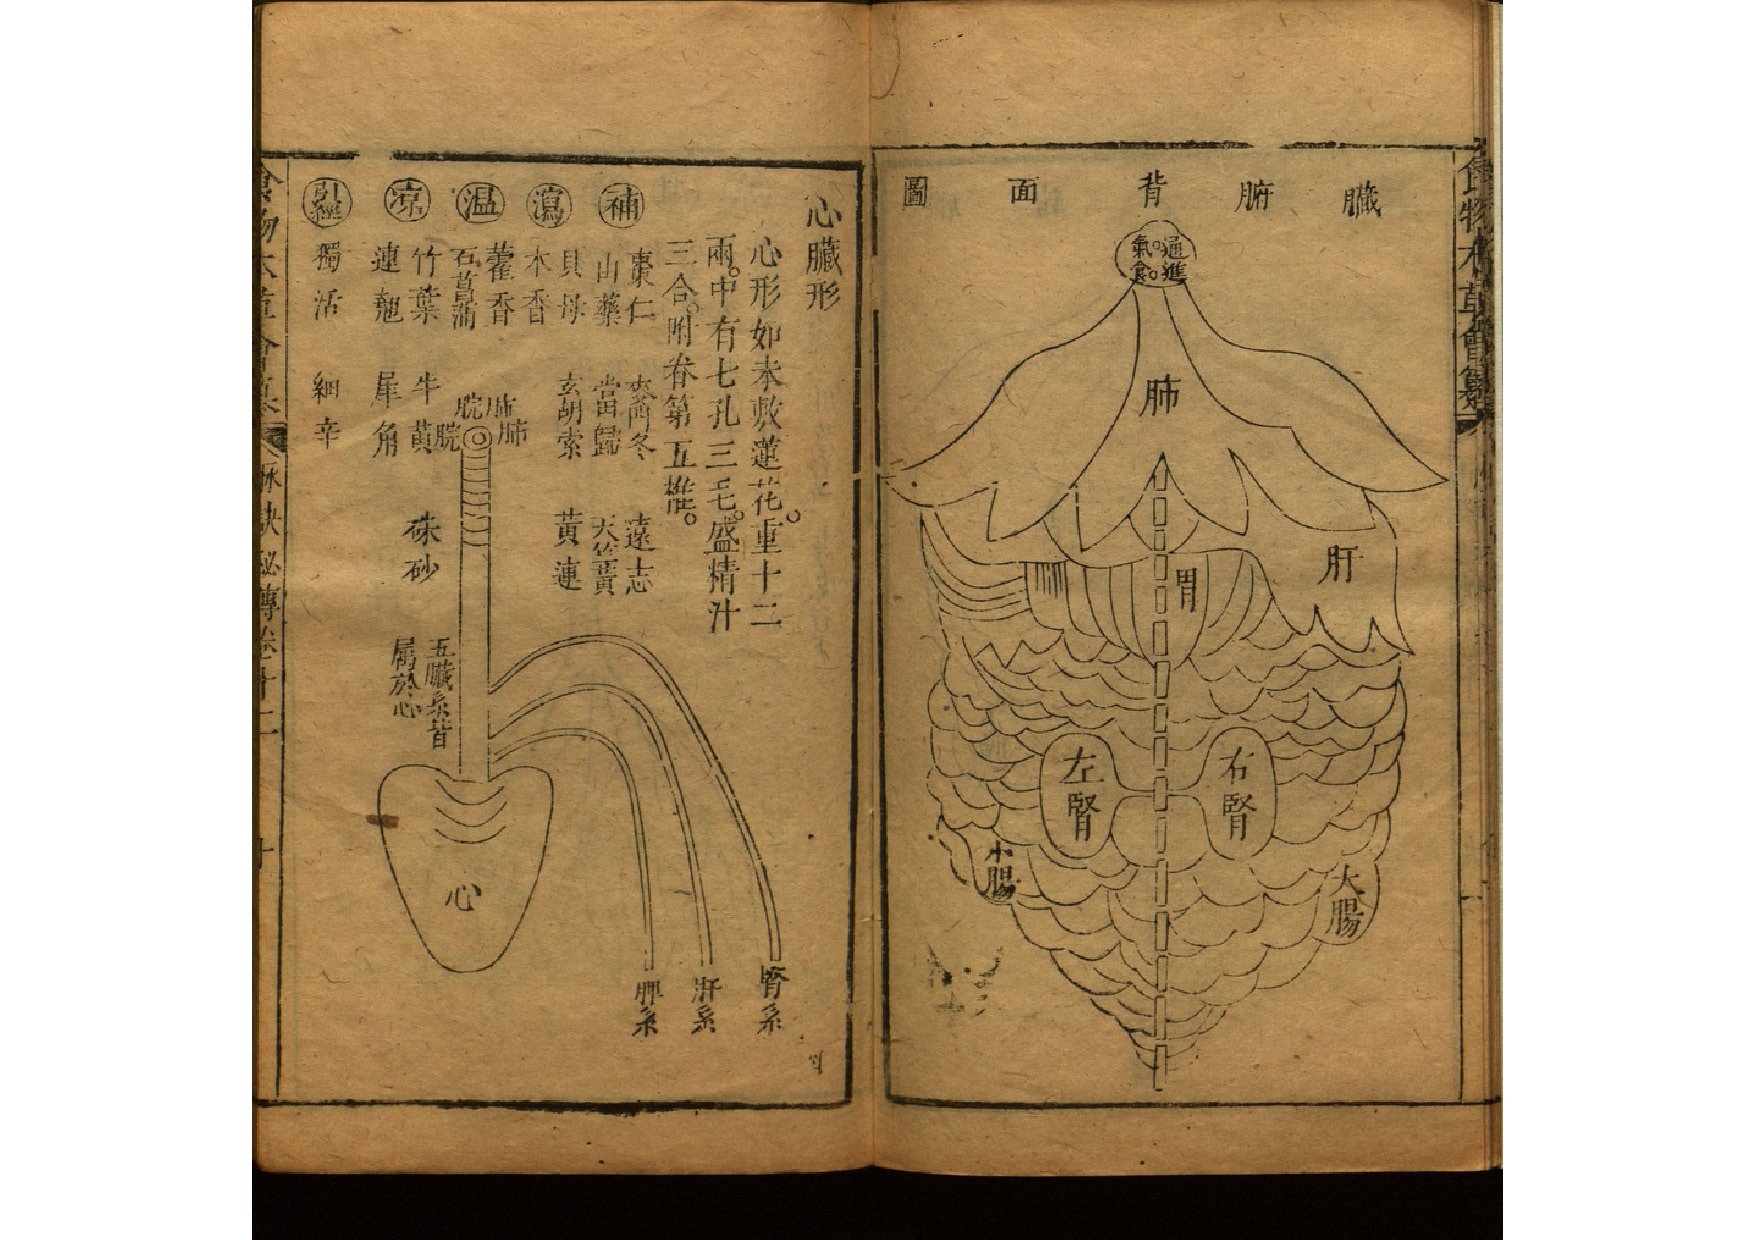 臟腑背面圖
通進
氣食
肺
肝
胃
左腎
右腎
小腸
大腸
食物本草會纂
心臟形
心形如未敷蓮花。重十二
兩。中有七孔三毛。盛精汁
三合。附脊第五椎。
補
棗仁 麥門冬 遠志
山藥 當歸 天竺黃
瀉
貝母 玄胡索 黃連
木香
温
藿香
石菖蒲
凉
竹葉 牛黃 硃砂
連翹 犀角
引經
獨活 細辛
肺
脘
肺
脘
五臟系皆
屬於心
心
腎系
肝系
脾系
食物本草會纂
脉訣秘傳卷十二
十